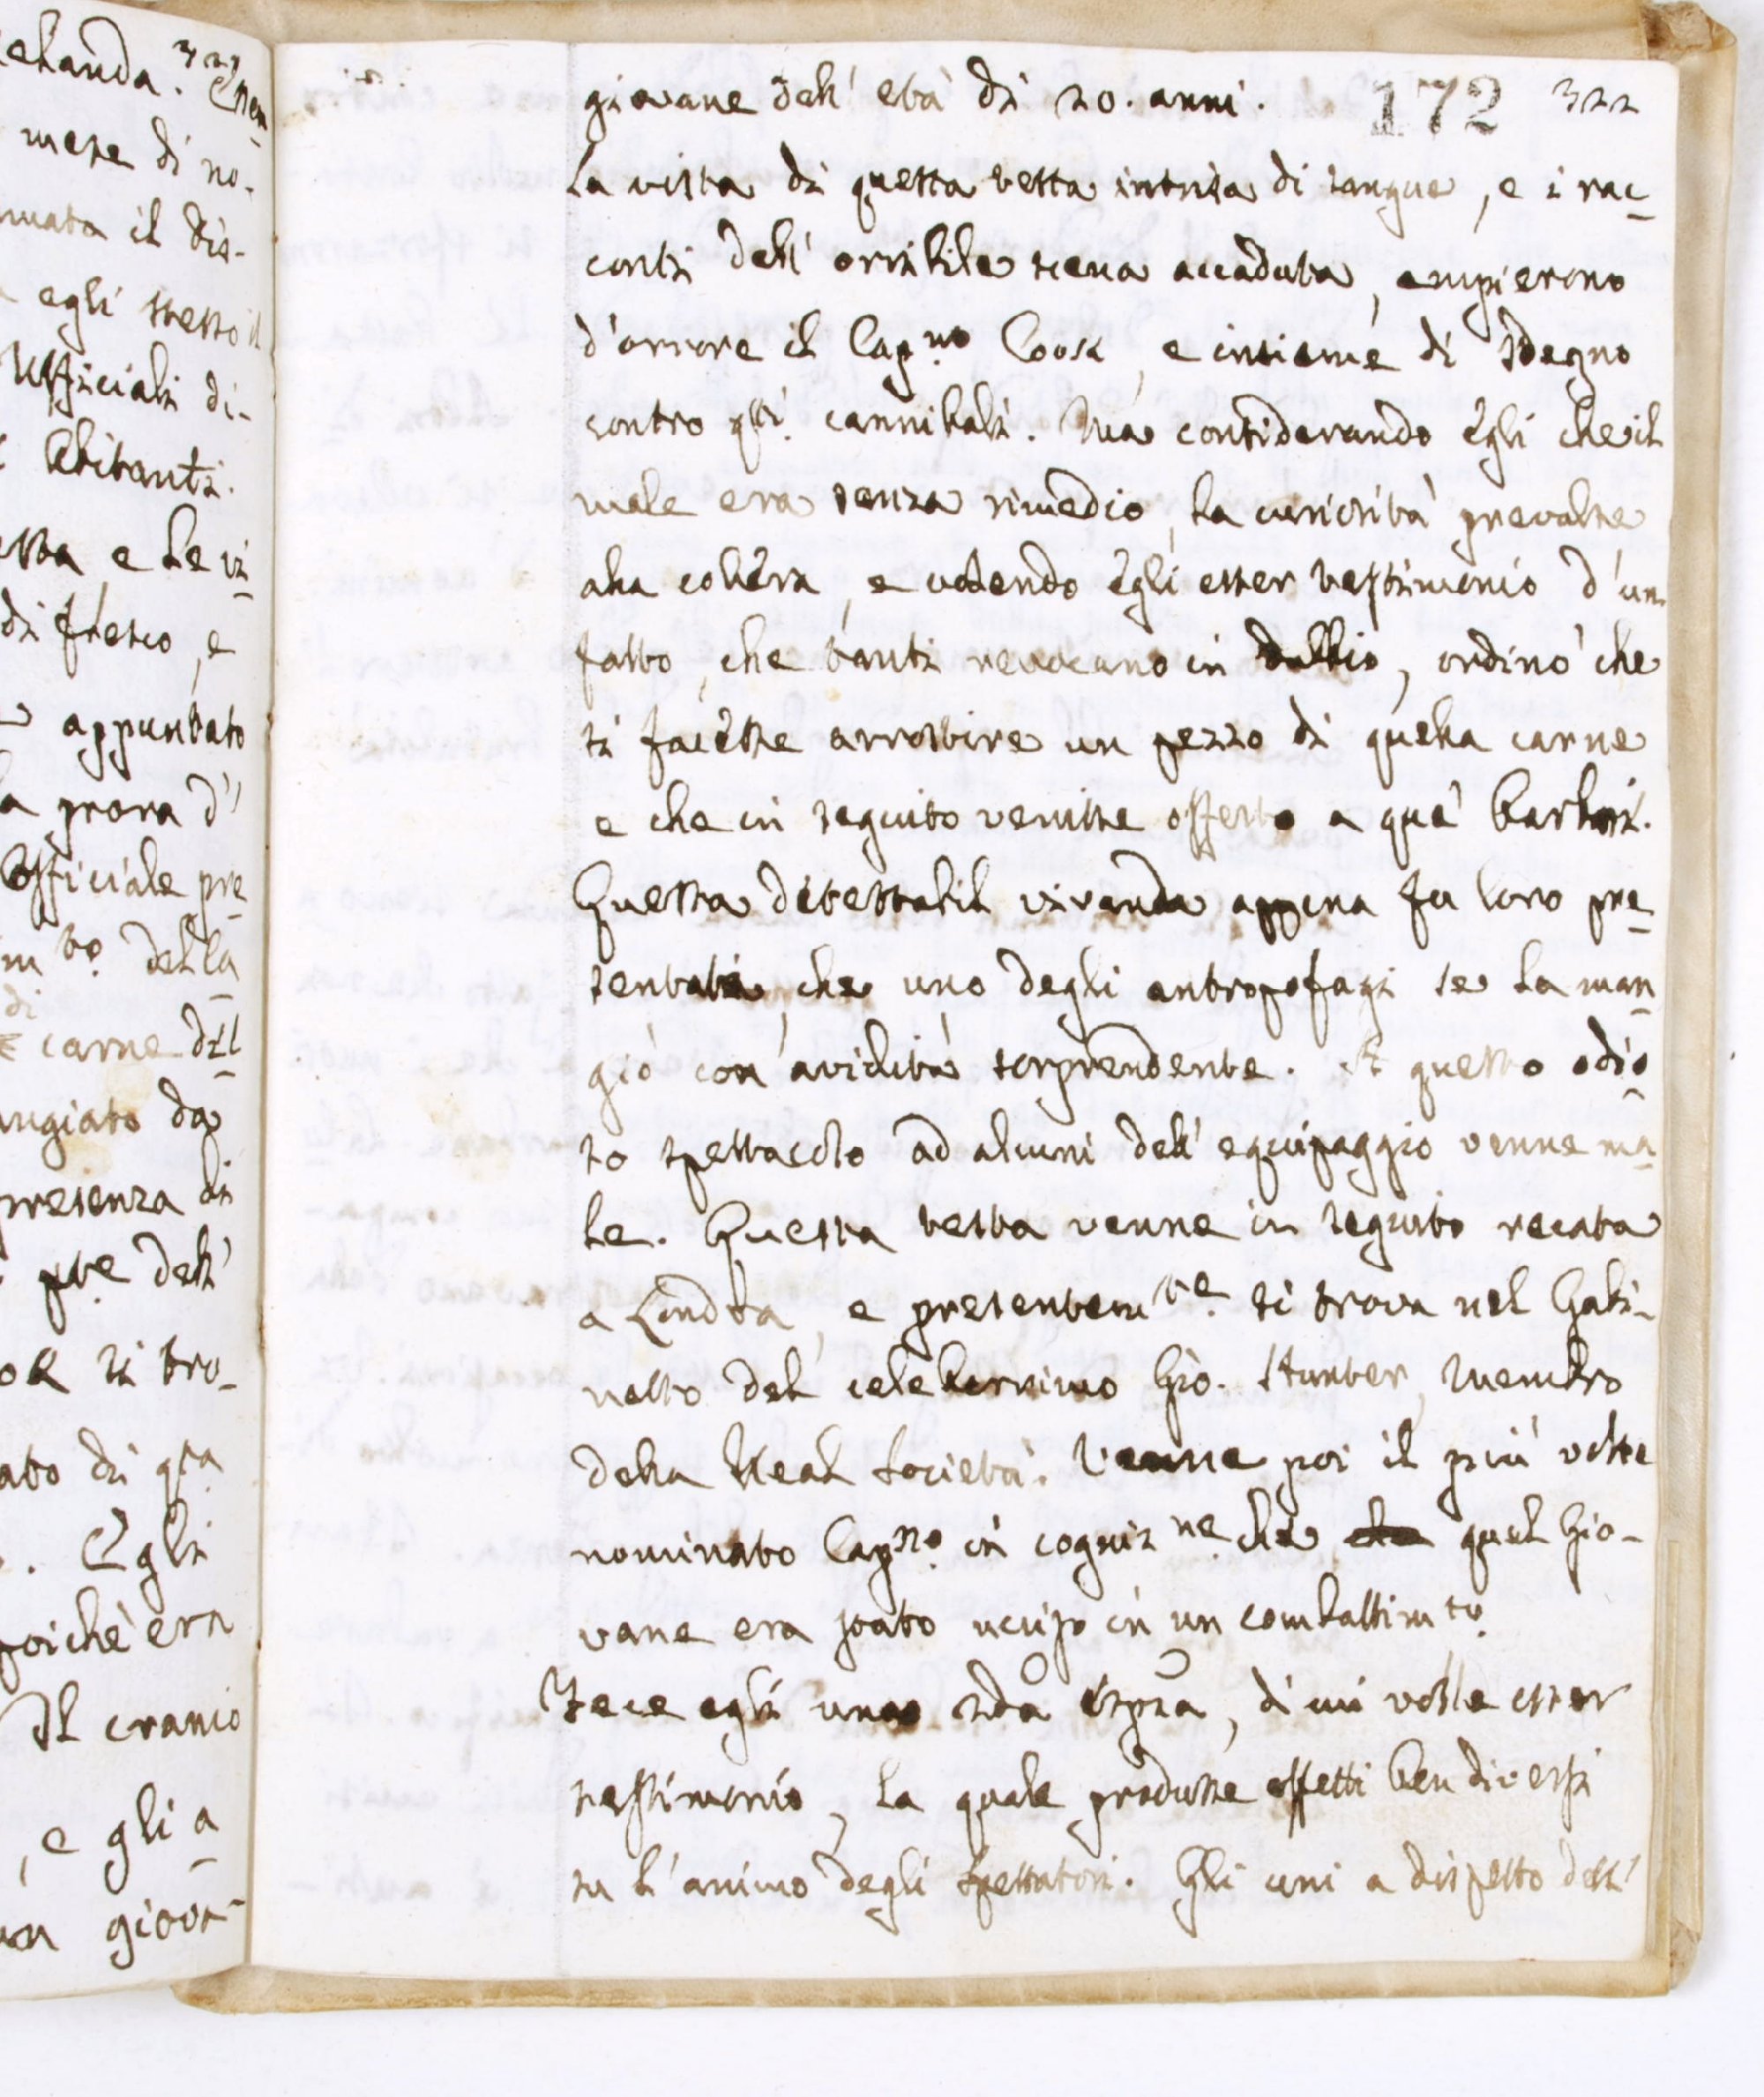 ehanda. 321 Essen
mese di no-
mata il dis-
egli stesso il
Ufficiali di-
Abitanti.
sta, e le vi
di fresco, e
appuntato
la prora d'
Officiale pre
m.to della
di
carne del
angiato da
presenza di
p.te dell'
ok si tro-
ato di q.ta
. Egli
poichè era
Il cranio
, e gli a
un giova-
giovane dell' età di 20. anni. 172 322
La vista di questa testa intrisa di sangue, e i rac
conti dell' orribile scena accaduta, empierono
d'orrore il Cap.no Cook, e insieme di sdegno
contro q.ti cannibali. Ma considerando Egli che il
male era senza rimedio, la curiosità prevalse
alla collera, e volendo Egli esser testimonio d'un
fatto, che tanti revocano in dubbio, ordinò che
si facesse arrostire un pezzo di quella carne
e che in seguito venisse offerto a que' barbari.
Questa detestabil vivanda appena fu loro pre
sentata, che uno degli antropofagi se la man
giò con avidità sorprendente. A questo odio
so spettacolo ad alcuni dell' equipaggio venne ma
le. Questa testa venne in seguito recata
a Londra, e presentem.te si trova nel Gabi-
netto del celeberrimo Gio. Hunter, Membro
della Real Società. Venne poi il più volte
nominato Cap.no in cogniz.ne che quel Gio-
vane era stato ucciso in un combattim.to
Fece egli una 2da Espza, di cui volle esser
testimonio, la quale produsse effetti ben diversi
su l'animo degli spettatori. Gli uni a dispetto dell'